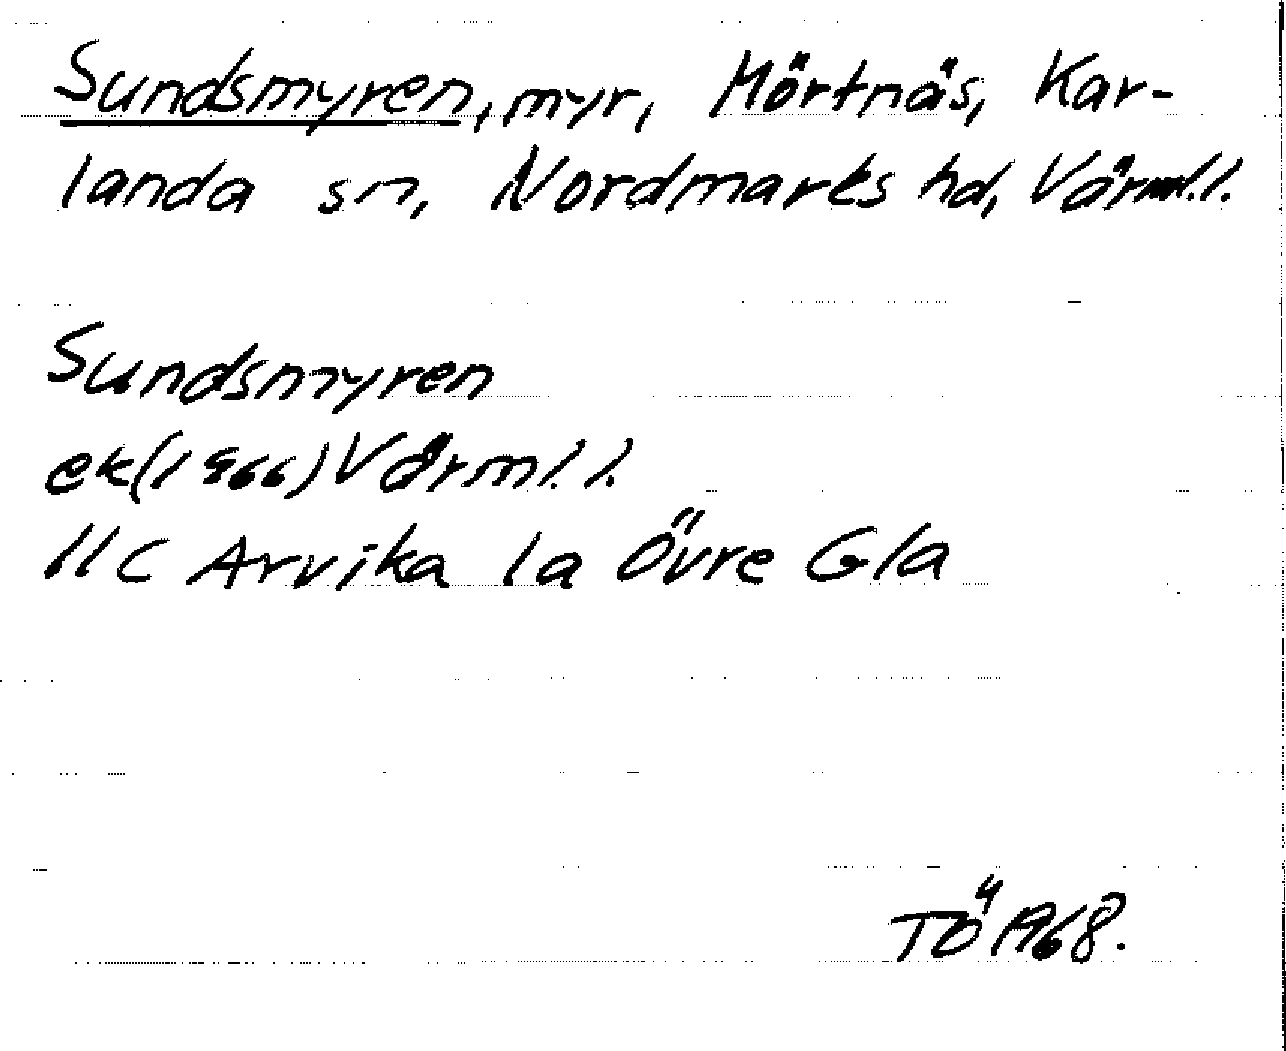 Sundsmyren, myr, Mörtnäs, Kar-
landa sn, Nordmarks hd, Värml.l.
Sundsmyren
ek(1966)Värml.l.
11C Arvika 1a Övre Gla
TÖ 1968.